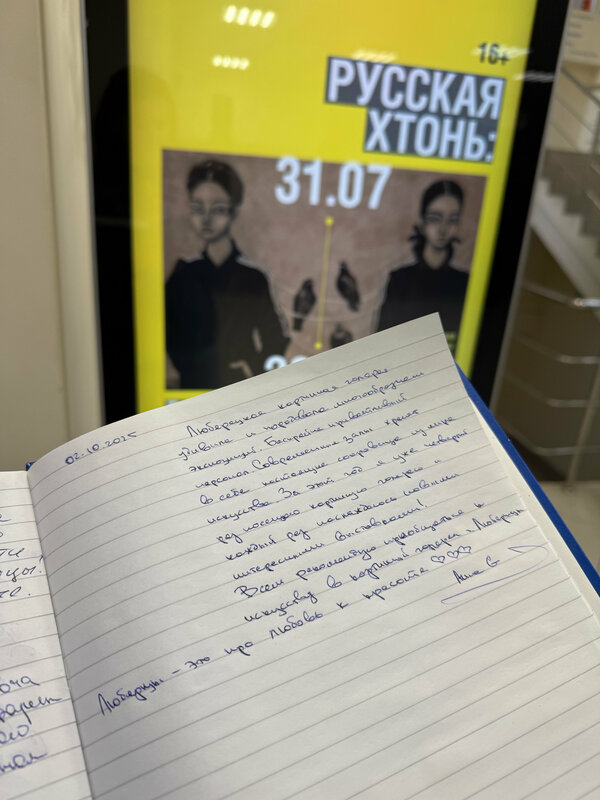 16+
РУССКАЯ
ХТОНЬ:
31.07
02.10.2025
Люберецкая картинная галерея
удивила и порадовала многообразием
экспозиций. Бескрайне приветливый
персонал. Современные залы хранят
в себе настоящие сокровища из мира
искусства. За этот год я уже четвертый
раз посещаю картинную галерею и
каждый раз наслаждаюсь новыми
интересными выставками!
Всем рекомендую приобщаться к
искусству в картинной галерее г. Люберцы
Люберцы – это про любовь к красоте ♡♡♡
Анна С